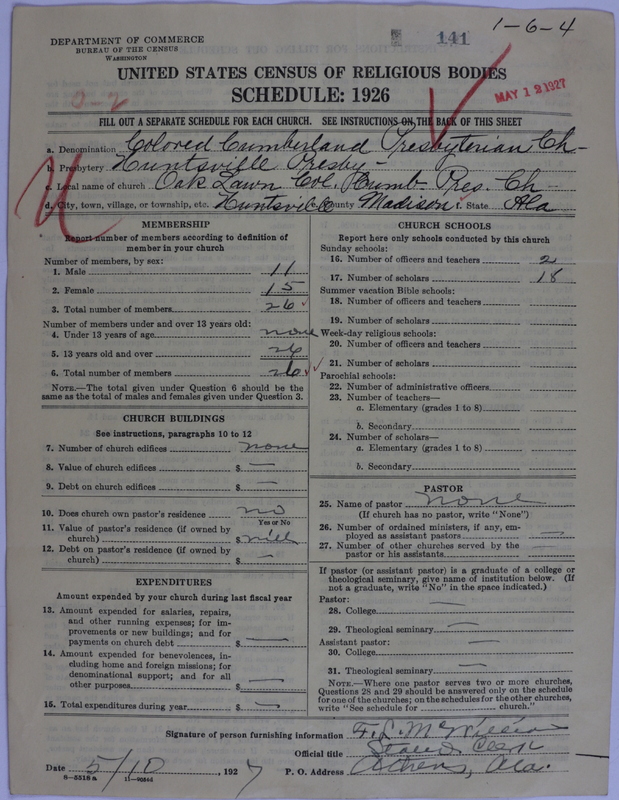 1-6-4
141
DEPARTMENT OF COMMERCE
BUREAU OF THE CENSUS
WASHINGTON
UNITED STATES CENSUS OF RELIGIOUS BODIES
SCHEDULE: 1926
MAY 12 1927
FILL OUT A SEPARATE SCHEDULE FOR EACH CHURCH. SEE INSTRUCTIONS ON THE BACK OF THIS SHEET
a. Denomination Colored Cumberland Presbyterian Ch-
b. Presbytery Huntsville Presby-
c. Local name of church Oak Lawn Col. Cumb. Pres. Ch-
d. City, town, village, or township, etc. Huntsville County Madison f. State Ala
MEMBERSHIP
Report number of members according to definition of
member in your church
Number of members, by sex:
1. Male 11
2. Female 15
3. Total number of members 26
Number of members under and over 13 years old:
4. Under 13 years of age none
5. 13 years old and over 26
6. Total number of members 26
NOTE.—The total given under Question 6 should be the
same as the total of males and females given under Question 3.
CHURCH BUILDINGS
See instructions, paragraphs 10 to 12
7. Number of church edifices none
8. Value of church edifices $ —
9. Debt on church edifices $ —
10. Does church own pastor's residence no
Yes or No
11. Value of pastor's residence (if owned by
church) $ nill
12. Debt on pastor's residence (if owned by
church) $ —
EXPENDITURES
Amount expended by your church during last fiscal year
13. Amount expended for salaries, repairs,
and other running expenses; for im-
provements or new buildings; and for
payments on church debt $ —
14. Amount expended for benevolences, in-
cluding home and foreign missions; for
denominational support; and for all
other purposes $ —
15. Total expenditures during year $ —
CHURCH SCHOOLS
Report here only schools conducted by this church
Sunday schools:
16. Number of officers and teachers 2
17. Number of scholars 18
Summer vacation Bible schools:
18. Number of officers and teachers
19. Number of scholars
Week-day religious schools:
20. Number of officers and teachers
21. Number of scholars
Parochial schools:
22. Number of administrative officers
23. Number of teachers—
a. Elementary (grades 1 to 8)
b. Secondary
24. Number of scholars—
a. Elementary (grades 1 to 8)
b. Secondary
PASTOR
25. Name of pastor none
(If church has no pastor, write "None")
26. Number of ordained ministers, if any, em-
ployed as assistant pastors —
27. Number of other churches served by the
pastor or his assistants —
If pastor (or assistant pastor) is a graduate of a college or
theological seminary, give name of institution below. (If
not a graduate, write "No" in the space indicated.)
Pastor:
28. College —
29. Theological seminary —
Assistant pastor:
30. College —
31. Theological seminary —
NOTE.—Where one pastor serves two or more churches,
Questions 28 and 29 should be answered only on the schedule
for one of the churches; on the schedules for the other churches,
write "See schedule for church."
Signature of person furnishing information F. L. McWillie
Official title Stated Clerk
Date 5/10, 1927 P. O. Address Athens, Ala.